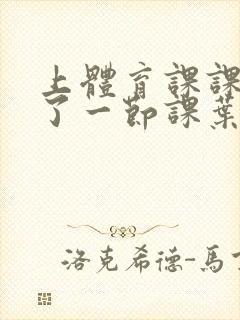 上體育課課
了一節課葉
洛克希德-馬丁